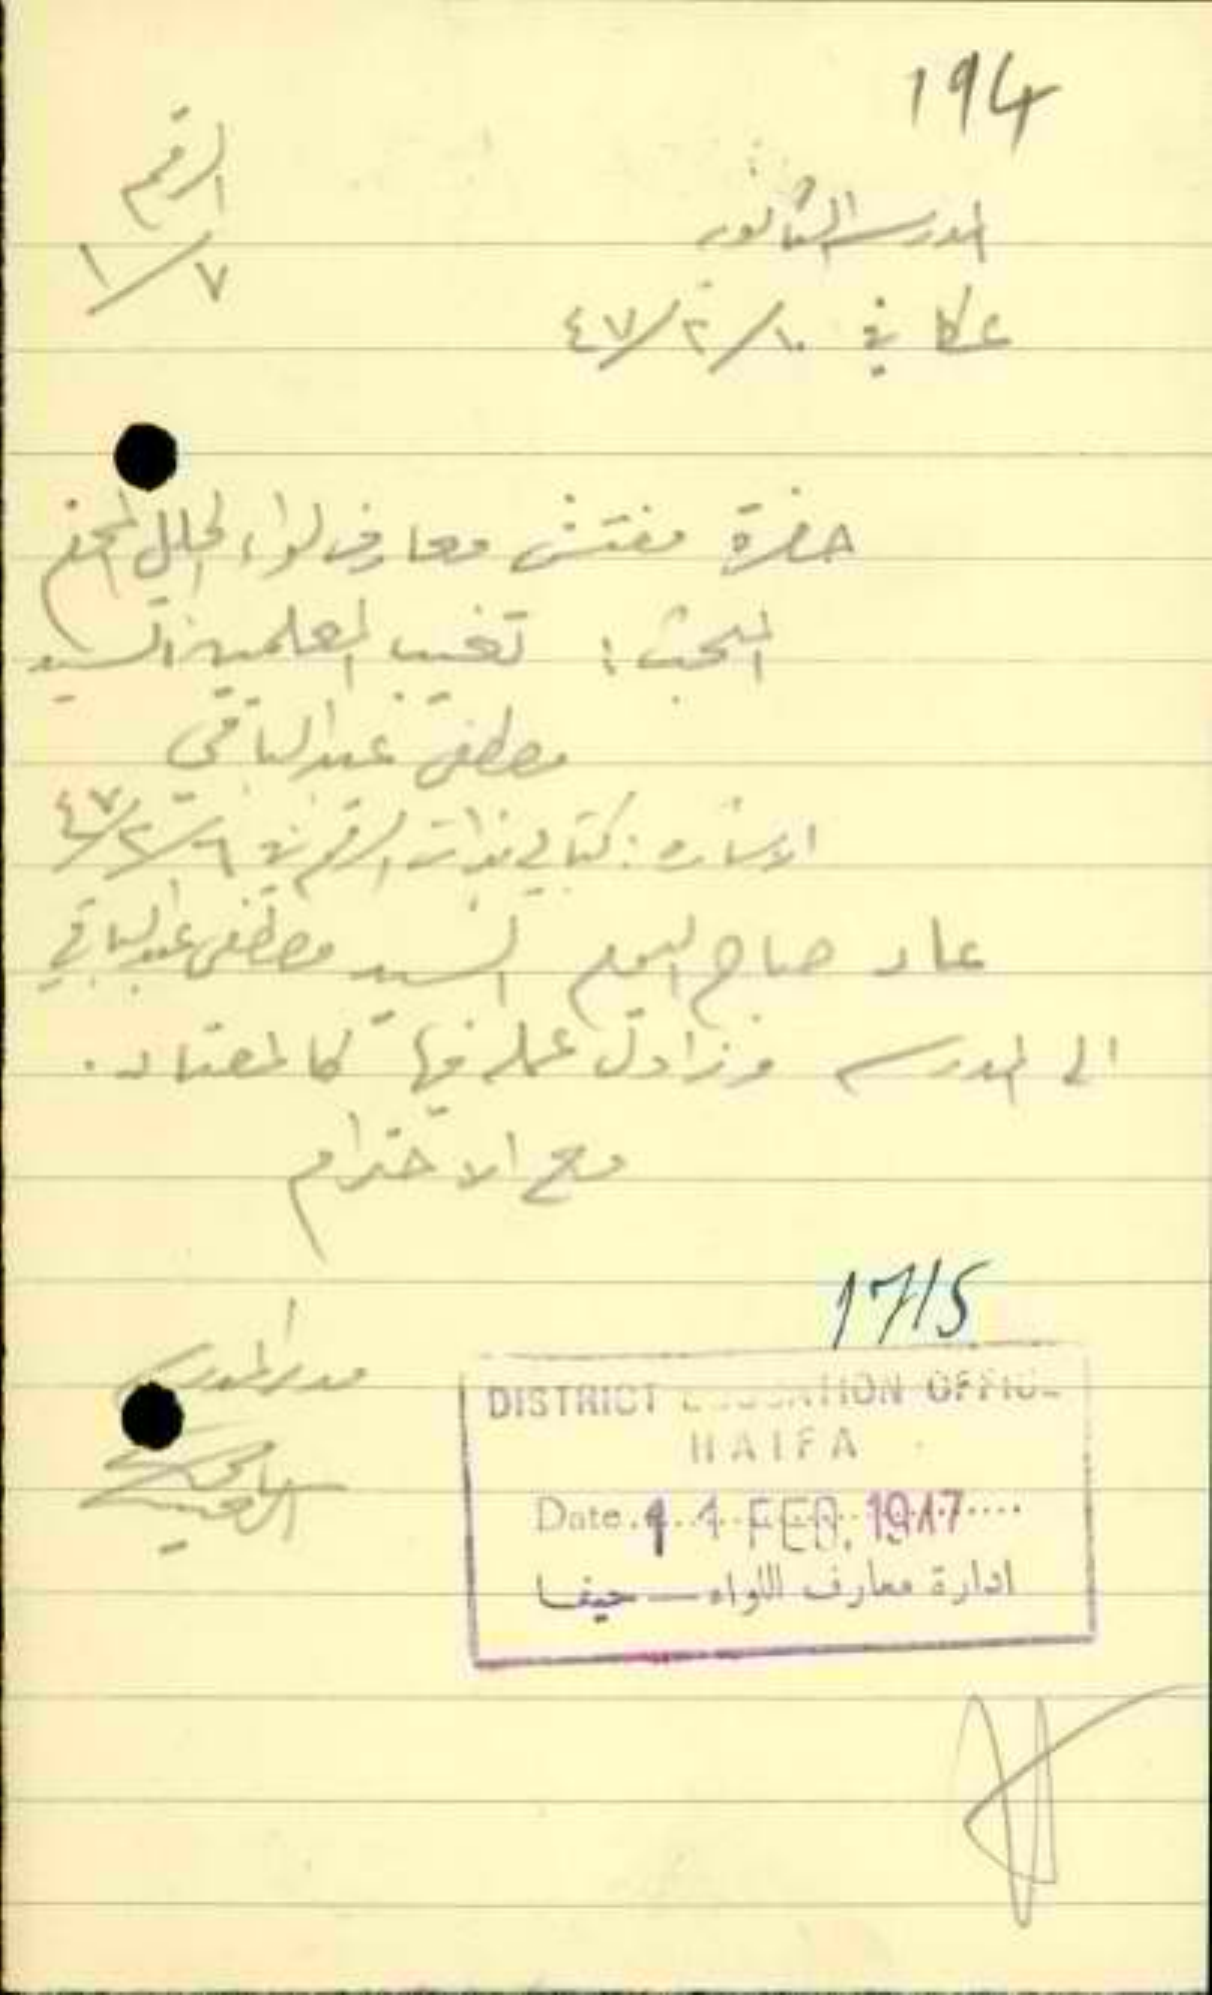 194
الرقم
٧/١
المدرسة الثانوية
عكا في ١٠/٢/٤٧
حضرة مفتش معارف لواء الجليل المحترم
المبحث : تغيب المعلمين السيد
مصطفى عبد الباقي
الاشارة : كتابي بذات الرقم في ٦/٢/٤٧
عاد صباح اليوم السيد مصطفى عبد الباقي
الى المدرسة وزاول عمله فيها كالمعتاد .
مع الاحترام
1715
مدير المدرسة
DISTRICT EDUCATION OFFICE
HAIFA
Date. 11 FEB. 1947
ادارة معارف اللواء — حيفا